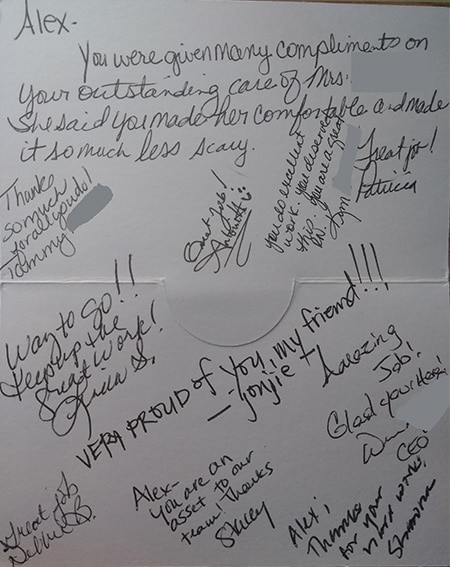 Alex-
You were given many compliments on
your outstanding care of Mrs.
She said you made her comfortable and made
it so much less scary.
Thanks
so much
for all you do!
Tammy
Great job!
you do excellent
work. you deserve
this. you are a great
Kym
Great job!
Patricia
Way to Go!!
Keep up the
great work!
Alicia S.
VERY PROUD of YOU, my friend!!!
- Jonjie T
Amazing
Job!
Glad you're here!
CEO!
Great job
Debbie B.
Alex-
you are an
asset to our
team! Thanks
Stacey
Alex,
Thanks
for your
hard work!
Shannon